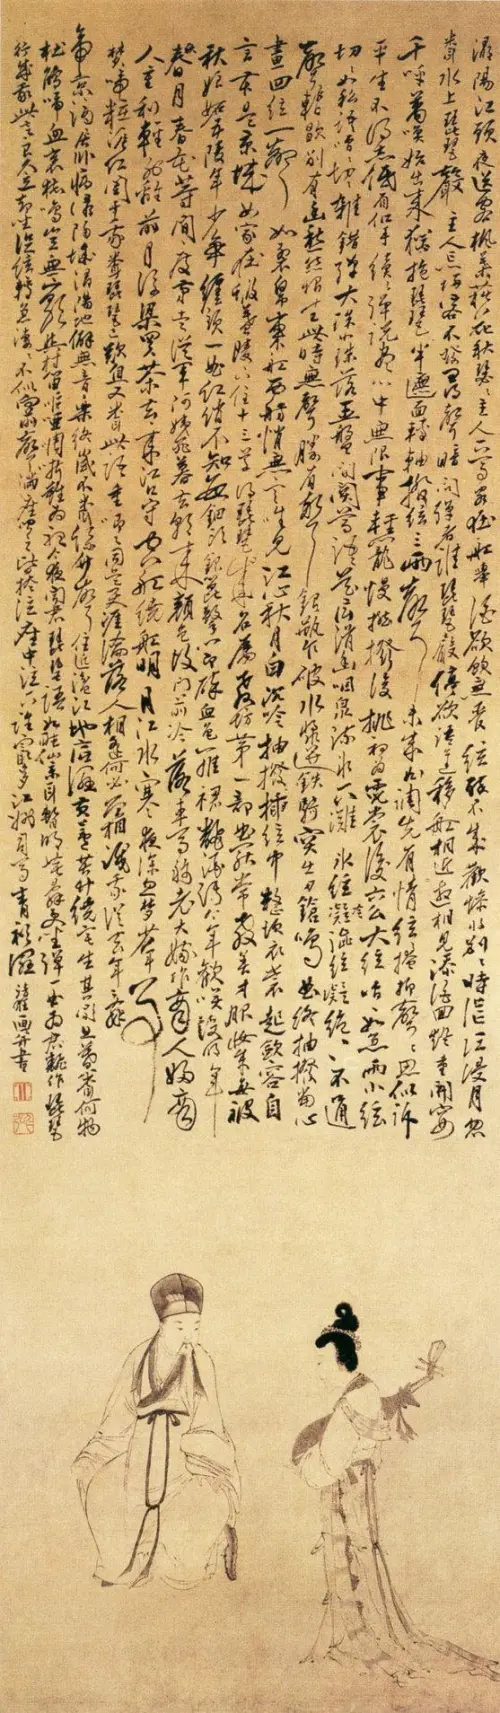 潯陽江頭夜送客楓葉荻花秋瑟瑟主人下馬客在船舉酒欲飲無管絃醉不成歡慘將別別時茫茫江浸月忽
聞水上琵琶聲主人忘歸客不發尋聲暗問彈者誰琵琶聲停欲語遲移船相近邀相見添酒回燈重開宴
千呼萬喚始出來猶抱琵琶半遮面轉軸撥絃三兩聲未成曲調先有情絃絃掩抑聲聲思似訴
平生不得志低眉信手續續彈說盡心中無限事輕攏慢撚撥復挑初為霓裳後六么大絃嘈嘈如急雨小絃
切切如私語嘈嘈切切雜錯彈大珠小珠落玉盤間關鶯語花底滑幽咽泉流冰下灘冰絃凝絕凝絕不通
聲暫歇別有幽愁暗恨生此時無聲勝有聲銀瓶乍破水漿迸鐵騎突出刀鎗鳴曲終抽撥當心
畫四絃一聲如裂帛東船西舫悄無言唯見江心秋月白沉吟抽撥插絃中整頓衣裳起斂容自
言本是京城女家在蝦蟇陵下住十三學得琵琶成名屬教坊第一部曲罷常教善才服妝成每被
秋娘妒五陵年少爭纏頭一曲紅綃不知數鈿頭銀篦擊節碎血色羅裙翻酒污今年歡笑復明年
春月春花等閒度弟走從軍阿姨死暮去朝來顏色改門前冷落車馬稀老大嫁作商人婦商
人重利輕別離前月浮梁買茶去來江口守空船繞船明月江水寒夜深忽夢少年事
夢啼粧淚紅闌干我聞琵琶已歎息又聞此語重唧唧同是天涯淪落人相逢何必曾相識我從去年辭
帝京謫居臥病潯陽城潯陽地僻無音樂終歲不聞絲竹聲住近湓江地低濕黃蘆苦竹繞宅生其間旦暮聞何物
杜鵑啼血哀猿鳴豈無山歌與村笛嘔啞嘲哳難為聽今夜聞君琵琶語如聽仙樂耳暫明莫辭更坐彈一曲為君翻作琵琶
行感我此言良久立却坐促絃絃轉急淒淒不似向前聲滿座聞之皆掩泣座中泣下誰最多江州司馬青衫濕 清狂畫并書